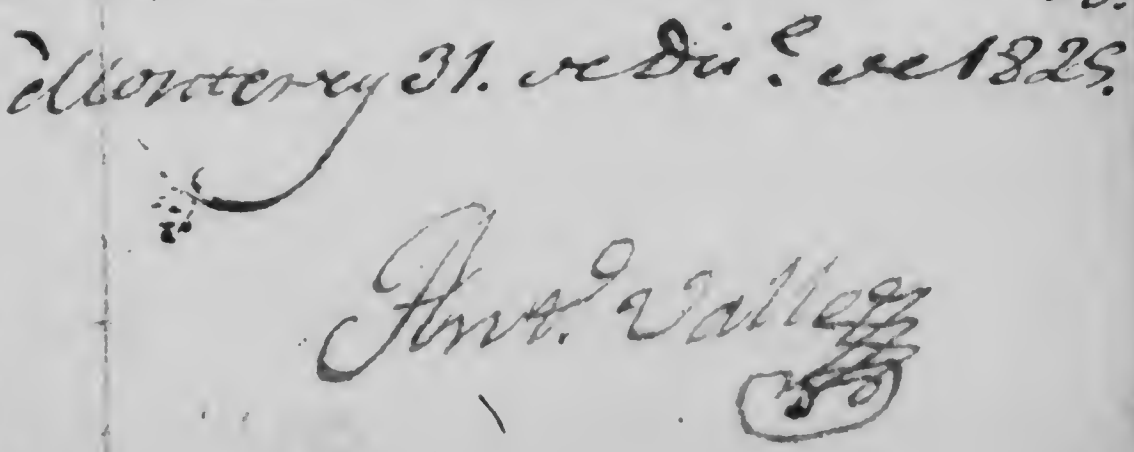 Monterey 31. de Dic.e de 1825.
Ant.o Valle